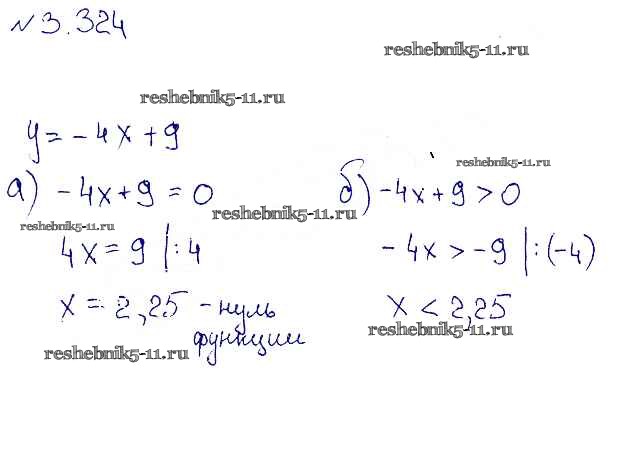 № 3.324
reshebnik5-11.ru
reshebnik5-11.ru
y = -4x + 9
reshebnik5-11.ru
а) -4x + 9 = 0
б) -4x + 9 > 0
reshebnik5-11.ru
reshebnik5-11.ru
4x = 9 |:4
-4x > -9 |:(-4)
x = 2,25 - нуль
функции
x < 2,25
reshebnik5-11.ru
reshebnik5-11.ru